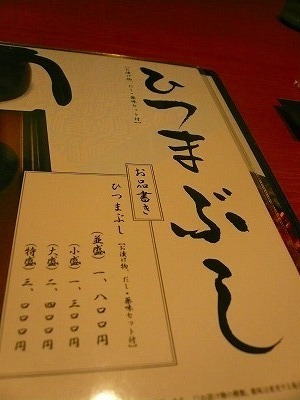 ひつまぶし
【お漬け物、だし・薬味セット付】
お品書き
ひつまぶし【お漬け物、だし・薬味セット付】
(並盛) 一、八〇〇円
(小盛) 一、三〇〇円
(大盛) 二、四〇〇円
(特盛) 三、〇〇〇円